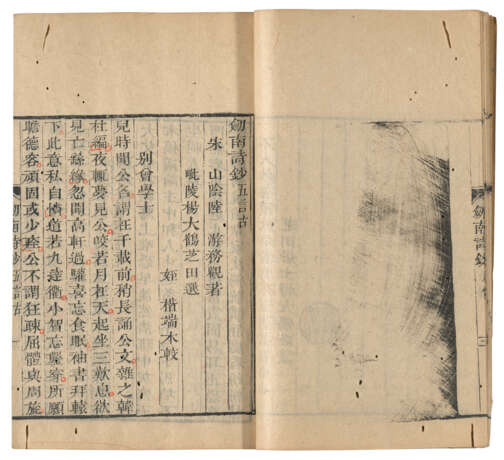 劒南詩鈔
三
劒南詩鈔五言古
宋 山陰陸 游務觀著
毗陵楊大鶴芝田選
姪 楷端木較
別曾學士
兒時聞公名謂在千載前稍長誦公文雜之韓
杜編夜輒夢見公皎若月在天起坐三歎息欲
見亡繇緣忽聞高軒過驩喜忘食眠袖書拜轅
下此意私自憐道若九達衢小智忘鑿穿所願
瞻德容頑固或少痊公不謂狂疎屈體與周旋
劒南詩鈔 五言古 一